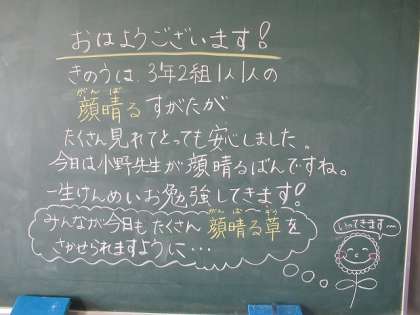 おはようございます！
きのうは、3年2組1人1人の
がんば
顔晴るすがたが
たくさん見れてとっても安心しました。
今日は小野先生が顔晴るばんですね。
一生けんめいお勉強してきます！
みんなが今日もたくさん顔晴る草を
がんばそう
さかせられますように…
いってきます〜